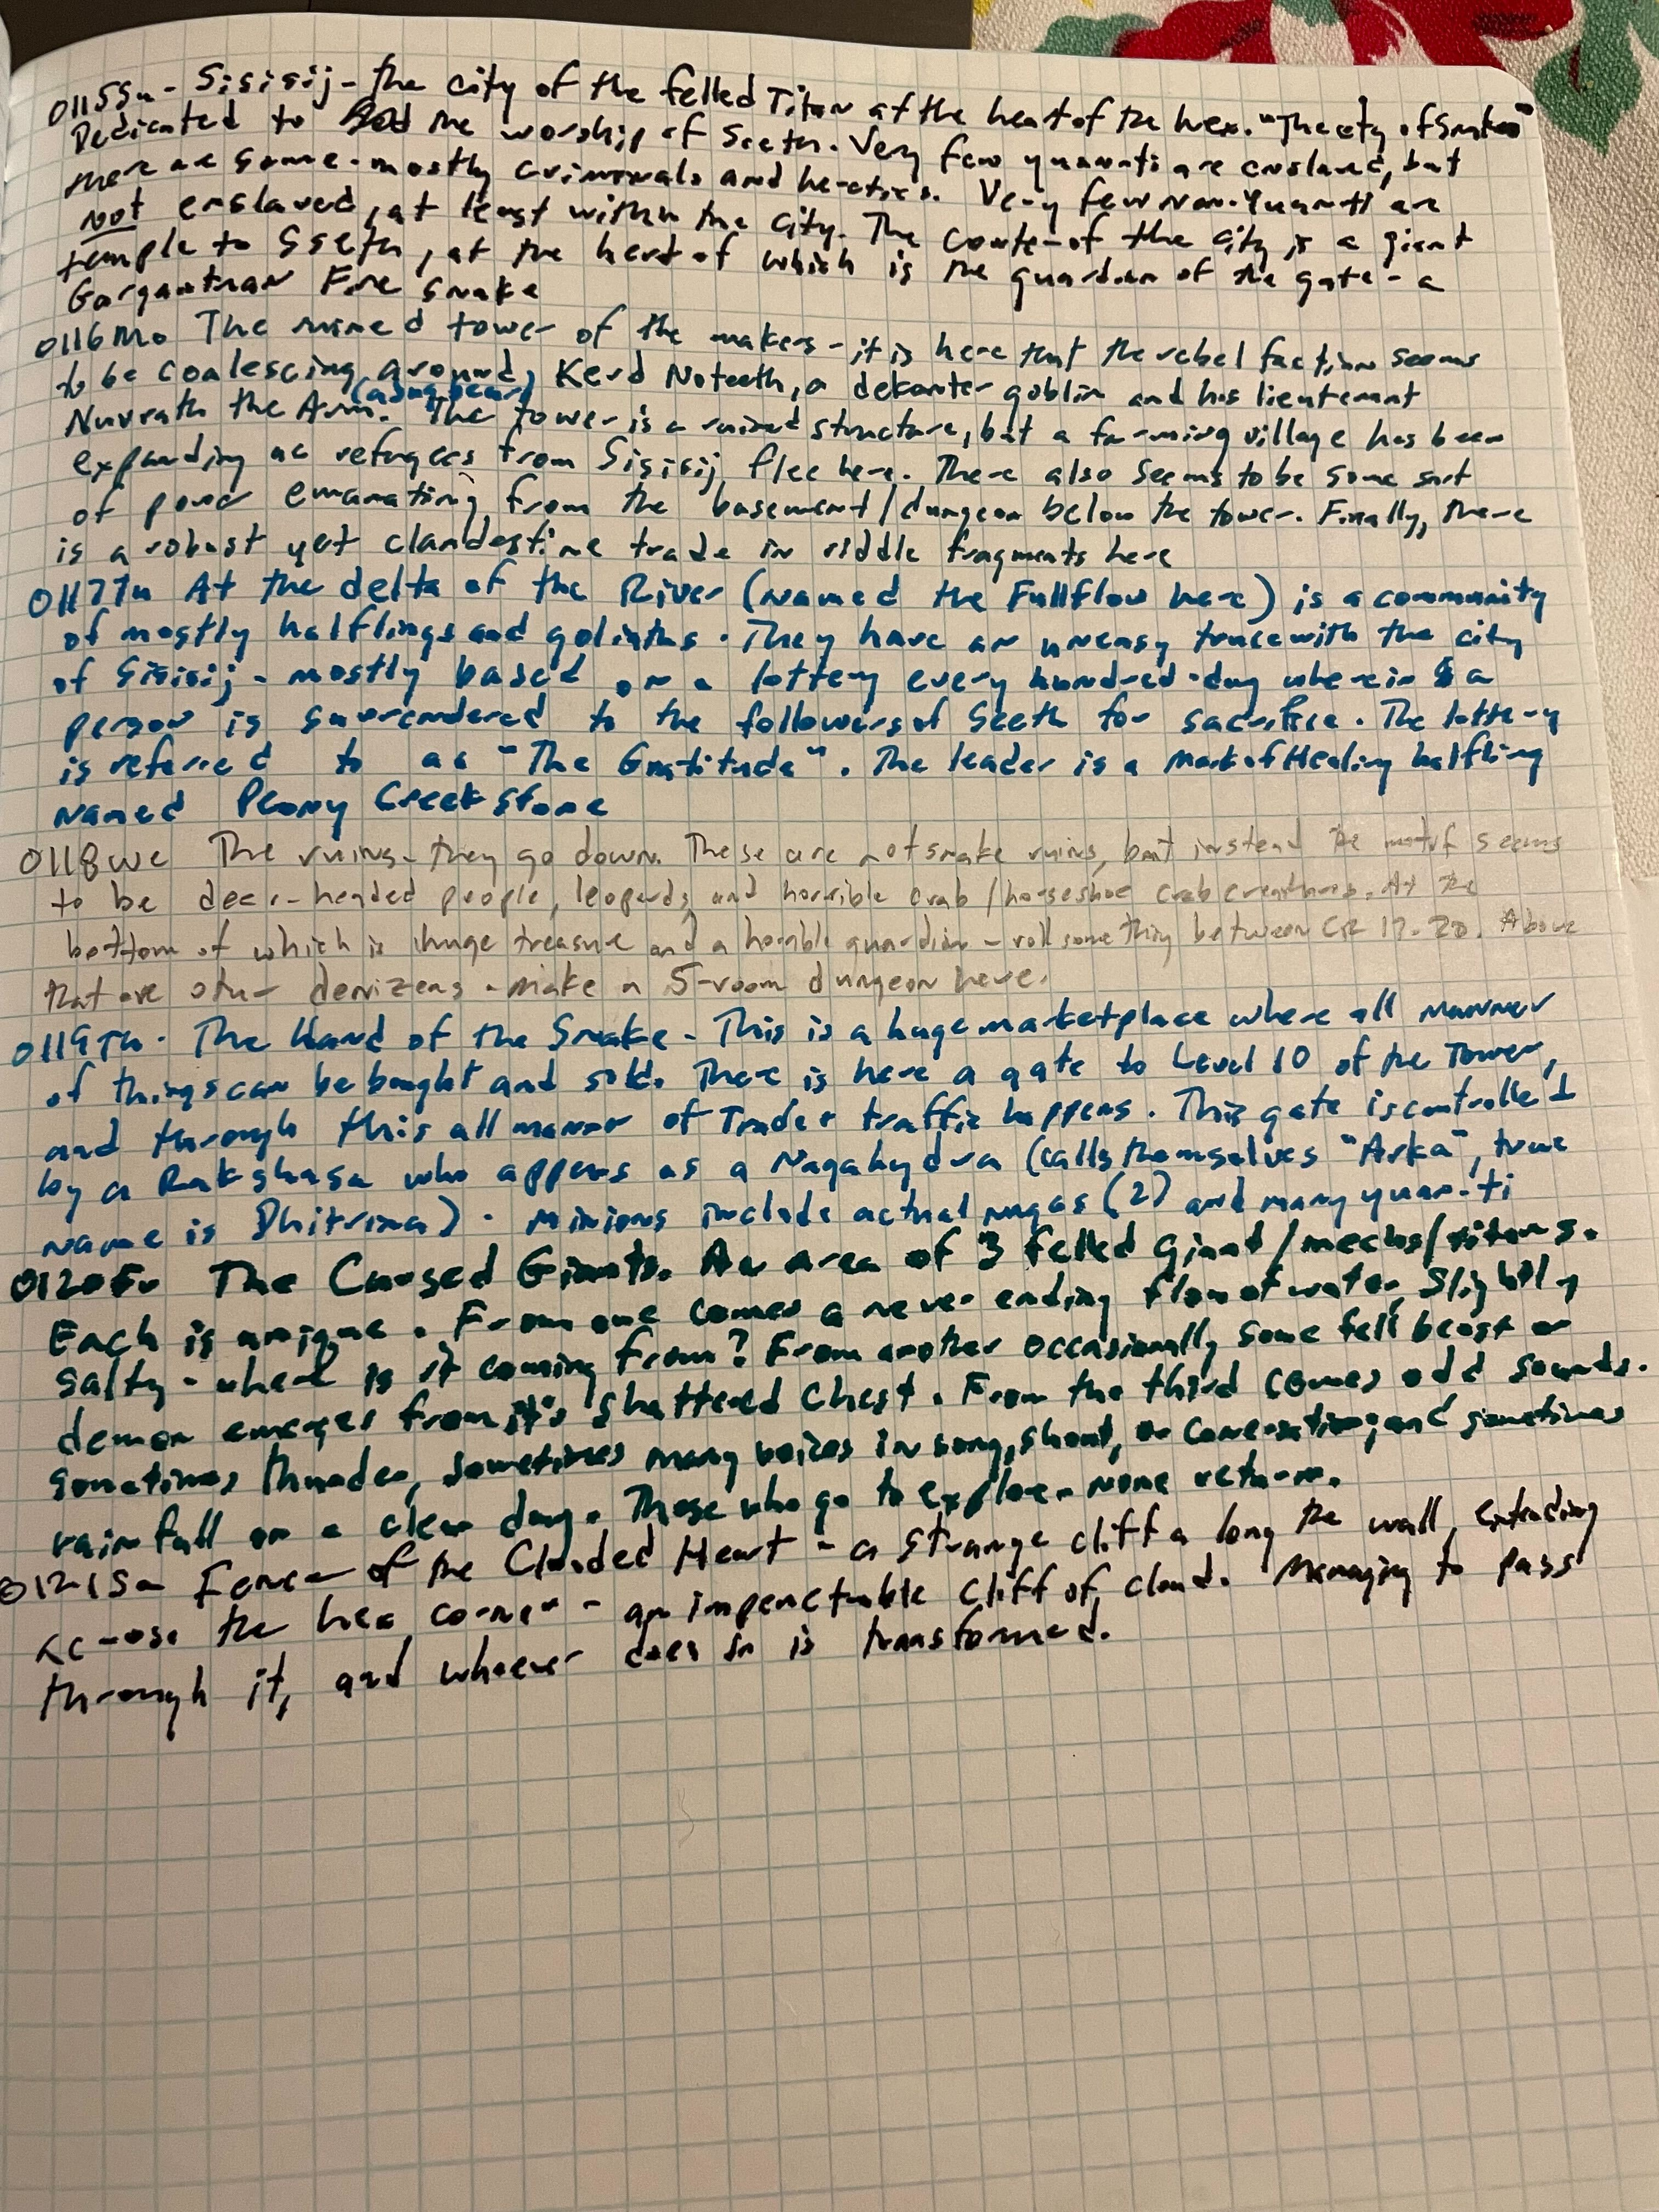 0115Su - Sisisij - the city of the felled Titan at the heart of the hex. "The city of Snakes"
Dedicated to the worship of Sseth. Very few yuan-ti are enslaved, but
there are some - mostly criminals and heretics. Very few non-Yuan-ti are
not enslaved, at least within the city. The center of the city is a giant
temple to Sseth, at the heart of which is the guardian of the gate - a
Gargantuan Fire Snake
0116Mo The ruined tower of the makers - it is here that the rebel faction seems
to be coalescing around Kerd Noteeth, a dekanter goblin and his lieutenant
Nuvrath the Arm. The tower is a ruined structure, but a farming village has been
expanding as refugees from Sisisij flee here. There also seems to be some sort
of power emanating from the basement/dungeon below the tower. Finally, there
is a robust yet clandestine trade in riddle fragments here
0117Tu At the delta of the River (named the Fullflow here) is a community
of mostly halflings and goliaths. They have an uneasy truce with the city
of Sisisij - mostly based on a lottery every hundred-day wherein a
person is surrendered to the followers of Sseth for sacrifice. The lottery
is referred to as "The Gratitude". The leader is a Mark of Healing halfling
named Peony Creekstone
0118We The ruins - they go down. These are not snake ruins, but instead the motif seems
to be deer-headed people, leopards, and horrible crab/horseshoe crab creatures. At the
bottom of which is a huge treasure and a horrible guardian - roll something between CR 17-20. Above
that are other denizens - make a 5-room dungeon here.
0119Th - The Hand of the Snake - This is a huge marketplace where all manner
of things can be bought and sold. There is here a gate to Level 10 of the Tower,
and through this all manner of Trade & traffic happens. This gate is controlled
by a Rakshasa who appears as a Nagahydra (calls themselves "Arka", true
name is Dhitrima). Minions include actual nagas (2) and many yuan-ti
0120Fr The Cursed Giants. An area of 3 felled giant/mechs/titans.
Each is unique. From one comes a never ending flow of water, slightly
salty - where is it coming from? From another occasionally some fell beast or
demon emerges from it's shattered chest. From the third comes odd sounds.
sometimes thunder, sometimes many voices in song, shout, or conversation; and sometimes
rainfall on a clear day. Those who go to explore - none return.
0121Sa of the Clouded Heart - a strange cliff along the wall, extending
across the hex corner - an impenetrable cliff of cloud. Managing to pass
through it, and whoever does so is transformed.